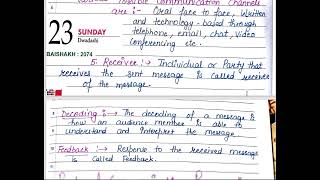 Possible Communication Channels
are :- Oral face to face, Written
and technology - based through
telephone, email, chat, video
conferencing etc.
23 SUNDAY
Dwadashi
BAISHAKH : 2074
5 Receiver :→ Individual or Party that
receives the sent message is called receiver
of the message.
Decoding :→ The decoding of a message is
how an audience member is able to
understand and interpret the message
Feedback :→ Response to the received message
is called Feedback.